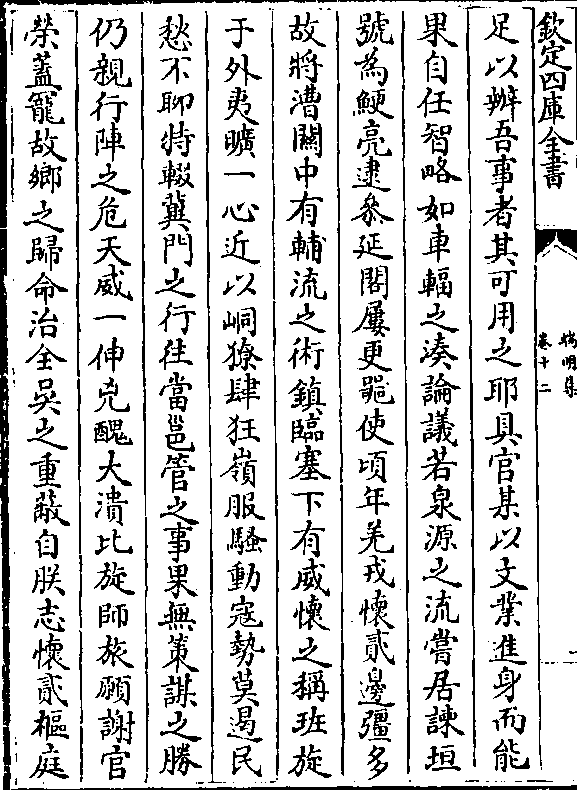 欽定四庫全書
端明集
卷十二
足以辦吾事者其可用之耶具官某以文業進身而能
果自任智略如車輻之湊論議若泉源之流嘗居諫垣
號為鯁亮逮參延閣屢更劇使頃年羌戎懷貳邊疆多
故將漕關中有輔流之術鎮臨塞下有威懷之稱班旋
于外夷曠一心近以峒獠肆狂嶺服騷動寇勢莫遏民
愁不聊特輟冀門之行往當邕管之事果無策謀之勝
仍親行陣之危天威一伸兇醜大潰比旋師旅願謝官
榮蓋寵故鄉之歸命治全吳之重蔽自朕志懷貳樞庭